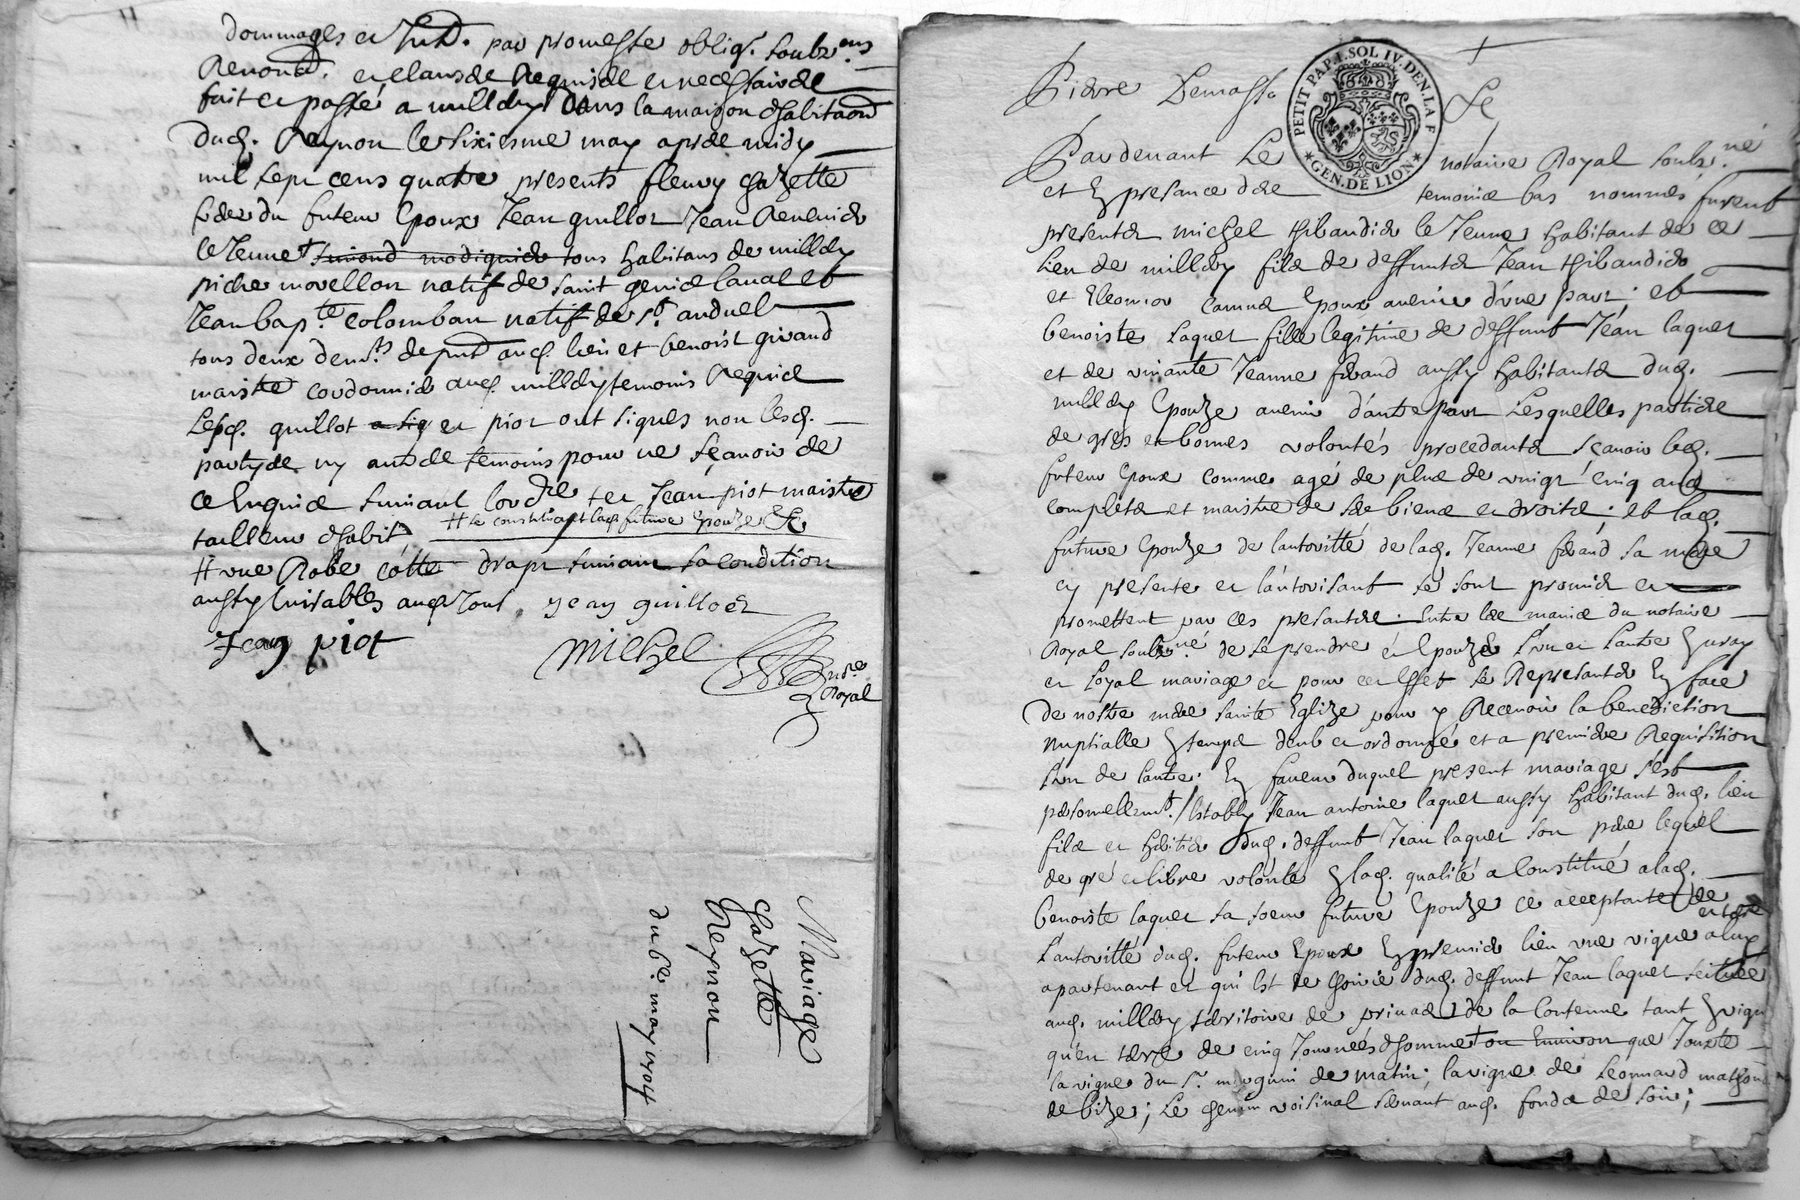 dommages et Intd. par promesse obligr. soubzons
Renond. et clausde Requisde et necessairde
fait et passé a milldry dans la maison dhabitaon
dud. Reynon le sixiesme may aprde midy
mil sept cens quatre presents fleury chazette
frder du futeur Epoux Jean guillot Jean
le Jeune tous habitans de milldry
pidre morellon natif de saint genide laual et
Jean bapte. colomban natif de st. anduel
tous deux demts. de pnt aud. lieu et benoist girand
maistre cordonnidr aud. milldry temoins Requide
Lesd. guillot et piot ont signés non lesd.
partyde ny autde temoins pour ne sçauoir de
ce Enquide suiuant lordre ter Jean piot maistre
tailleur dhabit # le constituant lad. future Epouze &c
# vne Robe cotte drapt suiuant sa condition
aussy aud. Jout. Jean guilloet
Jean piot
michel
nore.
Royal
Mariage
chazette
Reynon
du 6e. may 1704
Pidrre Demasso
PETIT PAP. I. SOL IV. DEN. LA F
GEN. DE LION
Pardeuant Le notaire Royal soubzné
et En presance dde temoinde bas nommés furent
presentde michel thibaudidr le Jeune habitant de ce
lieu de milldry filde de deffuntde Jean thibaudidr
et Eleonor camude Epoux auenir d'vne part; et
benoiste laquet fille legitime de deffunt Jean laquet
et de viuante Jeanne fdrand aussy habitantde dud.
milldry Epouze auenir d'autre part Lesquelles partide
de grés et bonnes volontés procedantde sçauoir led.
futeur Epoux comme agé de plude de vingt cinq ande
completde et maistre de sde biende et droitde; et lad.
future Epouze de lautoritté de lad. Jeanne fdrand sa mdre
cy presente et l'autorisant se sont promide et
promettent par ces presantde Entre lde mainde du notaire
Royal soubzné de se prendre et Epouzdr L'vn et Lautre En vray
et Loyal mariage et pour cet Effet se Representdr En face
de nostre mdre sainte Eglize pour y Receuoir la benediction
nuptialle En tempde deub et ordonné et a premidre Requisition
L'vn de lautre; En faueur duquel present mariage s'est
pdrsonnellemt. Estably Jean antoine laquet aussy habitant dud. lieu
filde et hdritidr dud. deffunt Jean laquet son pdre lequel
de gré et libre volonté En lad. qualité a Constitué a lad.
benoiste laquet sa soeur future Epouze ce acceptante de
L'autoritté dud. futeur Epoux En premidr lieu vne vigne
apartenant et qui Est de lhoirie dud. deffunt Jean laquet scituée
aud. milldry tdrritoire de prinade de la Contenue tant En vigne
qu'en tdrre de cinq Journées dhomme ou Enuiron que Jouxte
la vigne du sr. de matin; la vigne de Leonnard mathon
de bize; Le chemin voisinal sdruant aud. fondde de soir;